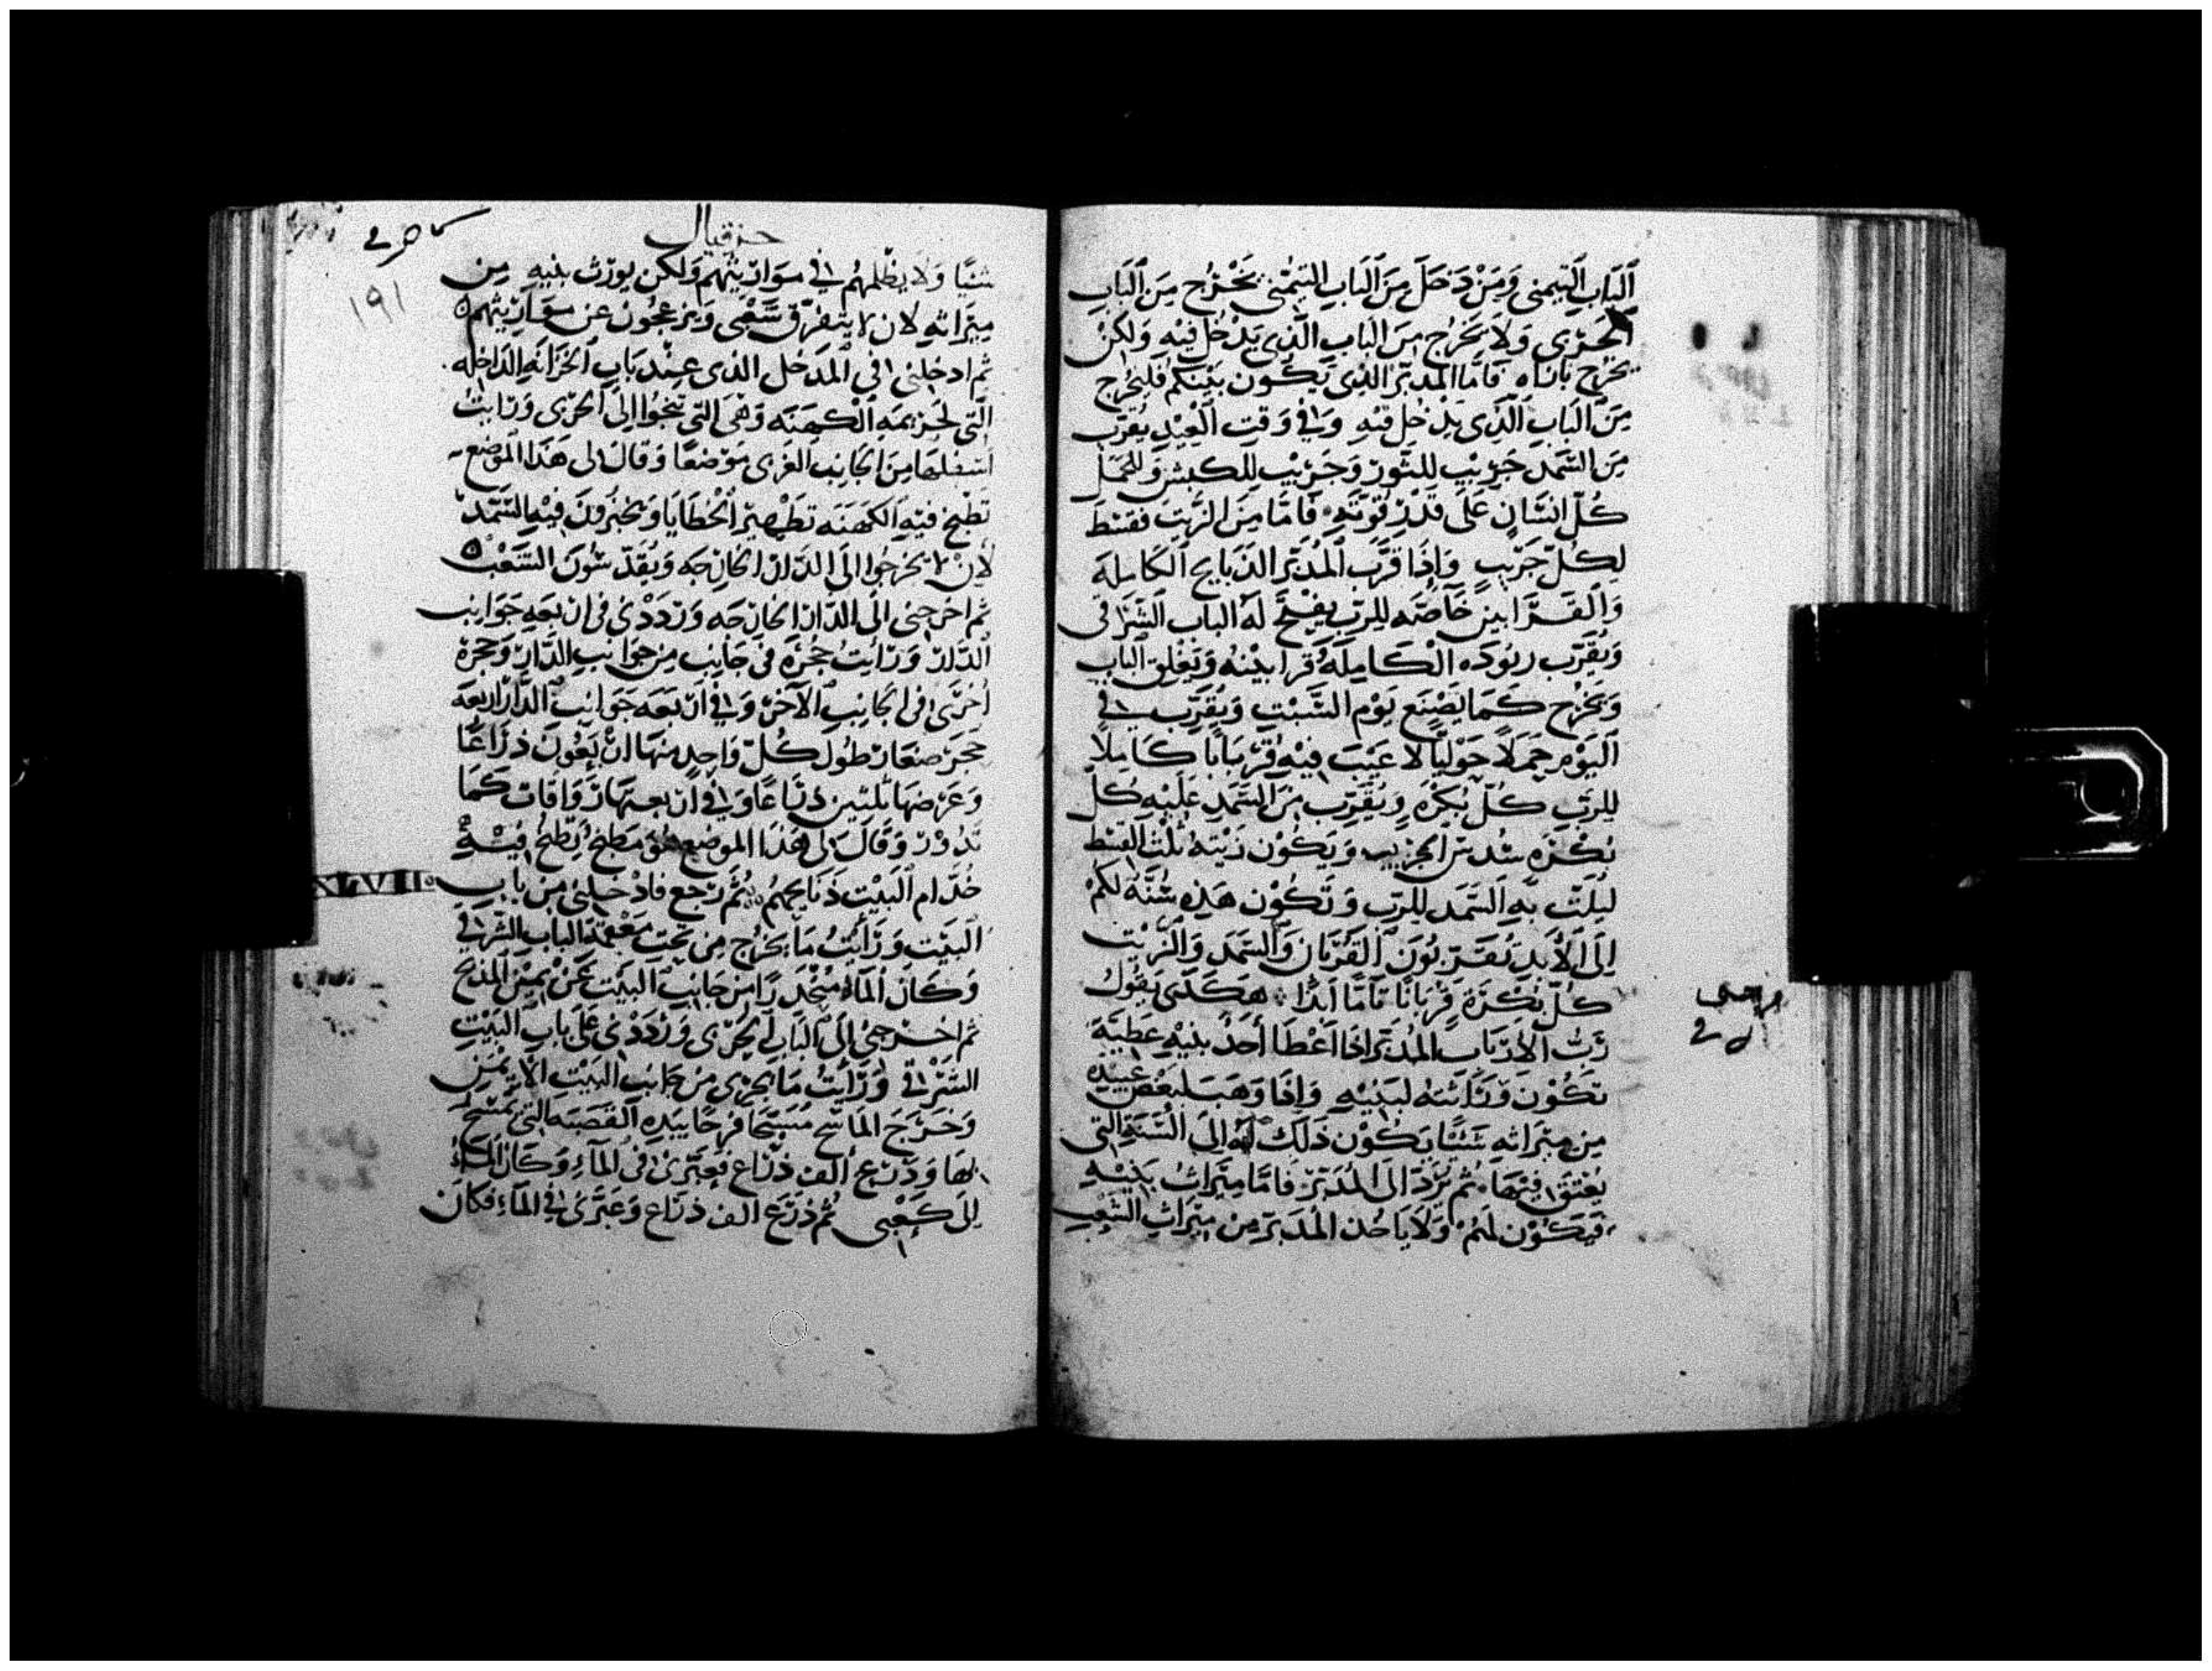 اَلبَاب اَلتَيمنى وَمَنْ دَخَلَ مِنَ اَلبَابِ التَيمْنى يَخْرُج مِنَ اَلبَابِ
الجَرْبى وَلَا يَخرُج مِنَ البَاب الَّذى يَدْخُل فيْهِ وَلكِنْ
يخرُج بازاه فَامَّا المُدَبّر الَّذِى يَكُون بَيْنكمُ فَليَخرج
مِنَ البَابِ الَّذى يَدْخُل فيْهِ وَفي وَقتِ اَلعِيْدِ يُقرّب
مِنَ السَّمَد جَرَيْبِ للثَّور وَجَرَيْب لِلكبش وَللحَمَل
كُلّ اِنسَانٍ عَلى قَدْرِ قُوّتهِ فَامَّا مِنَ الزَّيت فقسْط
لِكُلّ جَرَيْبٍ وَاِذَا قَرَّب المُدَبّر الذبَايح الكَامِلَة
وَالقَرَابين خَاصَّه لِلرَبّ يفْتح لهُ الباب الشَرَقى
وَيُقَرّب وقوده الكَامِلَة وَقرابيْنهُ وَيَغْلق الباب
وَيَخرُج كَمَا يَصْنَع يَوْم السَّبْتِ وَيُقَرّب في
اليَوْم حَمَلًا حَوْلياً لا عَيْبَ فيْهِ قُرْبَانًا كامِلًا
للربّ كُلّ بُكْرَه وَيُقَرّب مِنَ السَّمَد عَلَيْهِ كلّ
بُكْرَه سُدس الجَرَيب وَيَكُون زَيْته ثُلْث القسْط
ليلَتّ بهِ السَّمَد للرَبّ وَتَكُوْن هَذِه سُنَّة لكم
اِلَى الاَبَدِ تُقَرّبُونَ القُرْبَان وَالسَمَد وَالزَيْت
كُلّ بُكْرَة قُرْبَانًا تَامًّا اَبَدًا هَكَذى يَقُول
رَبّ الاَرْبَاب المُدَبّر اِذَا اَعْطَا اَحَدْ بنيْهِ عَطيَّة
تكُوْنَ وَرَاثتهُ لبَنيْهِ وَاِذَا وَهَبَ لبَعْض عَبيْده
مِن مِيْرَاثهِ شَيْئًا يَكُوْن ذَلِكَ لَهُ اِلىَ السَّنَةِ التى
يُعْتَقْ فيْهَا ثُم يُرَدّ اِلىَ المُدَبّر فَامَّا مِيْرَاث بَنيْهِ
فَيَكُوْن لهُمْ وَلَا يَاخُذ المُدَبّر مِن مِيْرَاثِ الشَعْبِ
حزقيال
١٩١
شيئًا وَلَا يظْلمهُم في موَاريثهم وَلكن يورّث بنيهِ مِن
ميرَاثهِ لان لا يتفرّق شَعْبى وَيزعجُون عن موَاريْثهم
ثم ادخلنى في المَدخل الذى عِنْد بَابِ الخزَانَهِ الدَاخله
الَّتى لخزيمَةِ الكَهَنَه وَهىَ التى تنحُوا الىَ الجَربى وَرَايتُ
اسفلهَا مِنَ الجَانِب الغَربى مَوْضعًا وَقَالَ لى هَذَا الموضع
تطبخ فيْهِ الكهَنَه تطهير الخْطَايَا وَيخبزُونَ فيْهِ السَّمَد
لاِنْ لا يخرجُوا الىَ الدَّار الخارجَه وَيُقَدّسُونَ الشَعْب
ثم اخرجنى الىَ الدَّار الخارجَه وَردَدْنى في اربعهِ جَوَانِب
اَلدّار وَرَايتُ حُجْرَة في جَانِب مِن جوَانبِ الدَّار وَحُجْرَة
اخرَى في الجَانِبِ الاَخَر وَفي ارْبعَه جَوَانِب الدَّار اربعَه
حجَر صغار طُول كُلّ وَاحِد مِنهَا ارْبَعُونَ ذِرَاعًا
وَعَرضهَا ثلثين ذرَاعًا وَفي اربعتهَا زَوَاقات كمَا
تَدُوْر وَقَالَ لى هَذَا الموضع هُوَ مَطبَخ يُطْبخُ فيْهِ
خُدّام البَيْت ذبَايحهُم ثُمَّ رَجع فَادْخَلنى مِنْ بابِ
XLVII
البَيْت وَرَايْتُ مَا يخرُج مِن تحتِ مَعْقمة الباب الشَرقى
وَكَانَ المَاءُ مُنْحَدرًا مِن جَانِب البَيْت عَنْ يَميْن المَذبَح
ثم اخْرجنى اِلىَ البَابِ الجَربى وَرَدَدْنى عَلى بَابِ البَيْتِ
الشَرْقى وَرَايْتُ مَا يجرى مِن جَانِب البَيْت الاَيْمَن
وَخَرَجَ المَاسِّح مُسَبّحًا فرحًا بيَدِهِ القَصَبَه التى يَمْسَحُ
بهَا وَذَرَع الف ذرَاع فعَبّرنى في المَاءِ وَكَانَ المَاءُ
اِلى كَعْبى ثُم ذرَع الف ذرَاع وَعَبّرنى في المَاءِ فكان